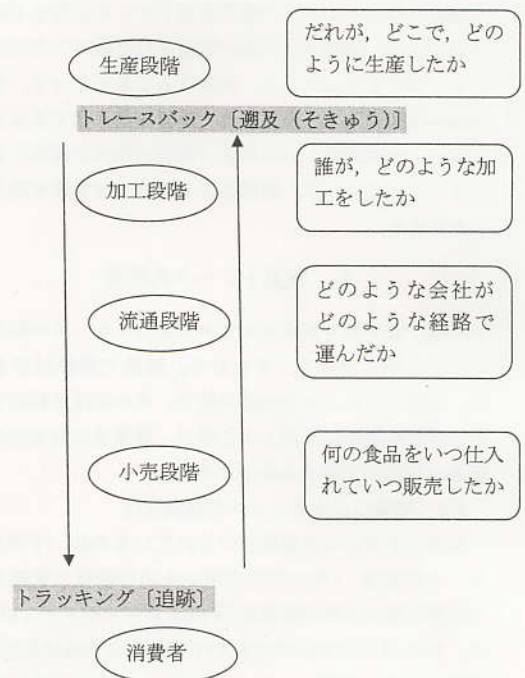 生産段階
だれが，どこで，どの
ように生産したか
トレースバック〔遡及（そきゅう）〕
加工段階
誰が，どのような加
工をしたか
流通段階
どのような会社が
どのような経路で
運んだか
小売段階
何の食品をいつ仕入
れていつ販売したか
トラッキング〔追跡〕
消費者